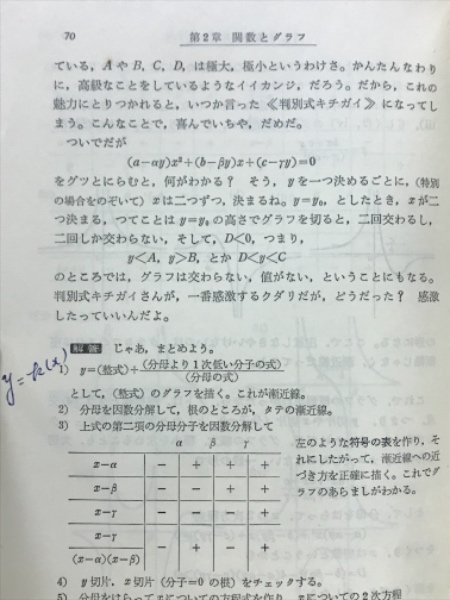 70
第2章 関数とグラフ
ている，AやB，C，D，は極大，極小というわけさ。かんたんなわり
に，高級なことをしているようなイイカンジ，だろう。だから，これの
魅力にとりつかれると，いつか言った《判別式キチガイ》になってし
まう。こんなことで，喜んでいちゃ，だめだ。
ついでだが
(a−αy)x²+(b−βy)x+(c−γy)=0
をグツとにらむと，何がわかる？ そう，yを一つ決めるごとに，(特別
の場合をのぞいて) xは二つずつ，決まるね。y=y₀，としたとき，xが二
つ決まる，つてことは y=y₀ の高さでグラフを切ると，二回交わるし，
二回しか交わらない，そして，D<0，つまり，
y<A，y>B，とか D<y<C
のところでは，グラフは交わらない，値がない，ということにもなる。
判別式キチガイさんが，一番感激するクダリだが，どうだった？ 感激
したっていいんだよ。
解答 じゃあ，まとめよう。
1) y=(整式)+(分母より1次低い分子の式)
(分母の式)
として，(整式) のグラフを描く。これが漸近線。
2) 分母を因数分解して，根のところが，タテの漸近線。
3) 上式の第二項の分母分子を因数分解して
α β γ
x−α − + + +
x−β − − + +
x−γ − − − +
x−γ
(x−α)(x−β) − + − +
左のような符号の表を作り，そ
れにしたがって，漸近線への近
づき方を正確に描く。これでグ
ラフのあらましがわかる。
4) y切片，x切片 (分子=0 の根) をチェックする。
5) 分母をはらってxについての方程式を作り，xについての2次方程